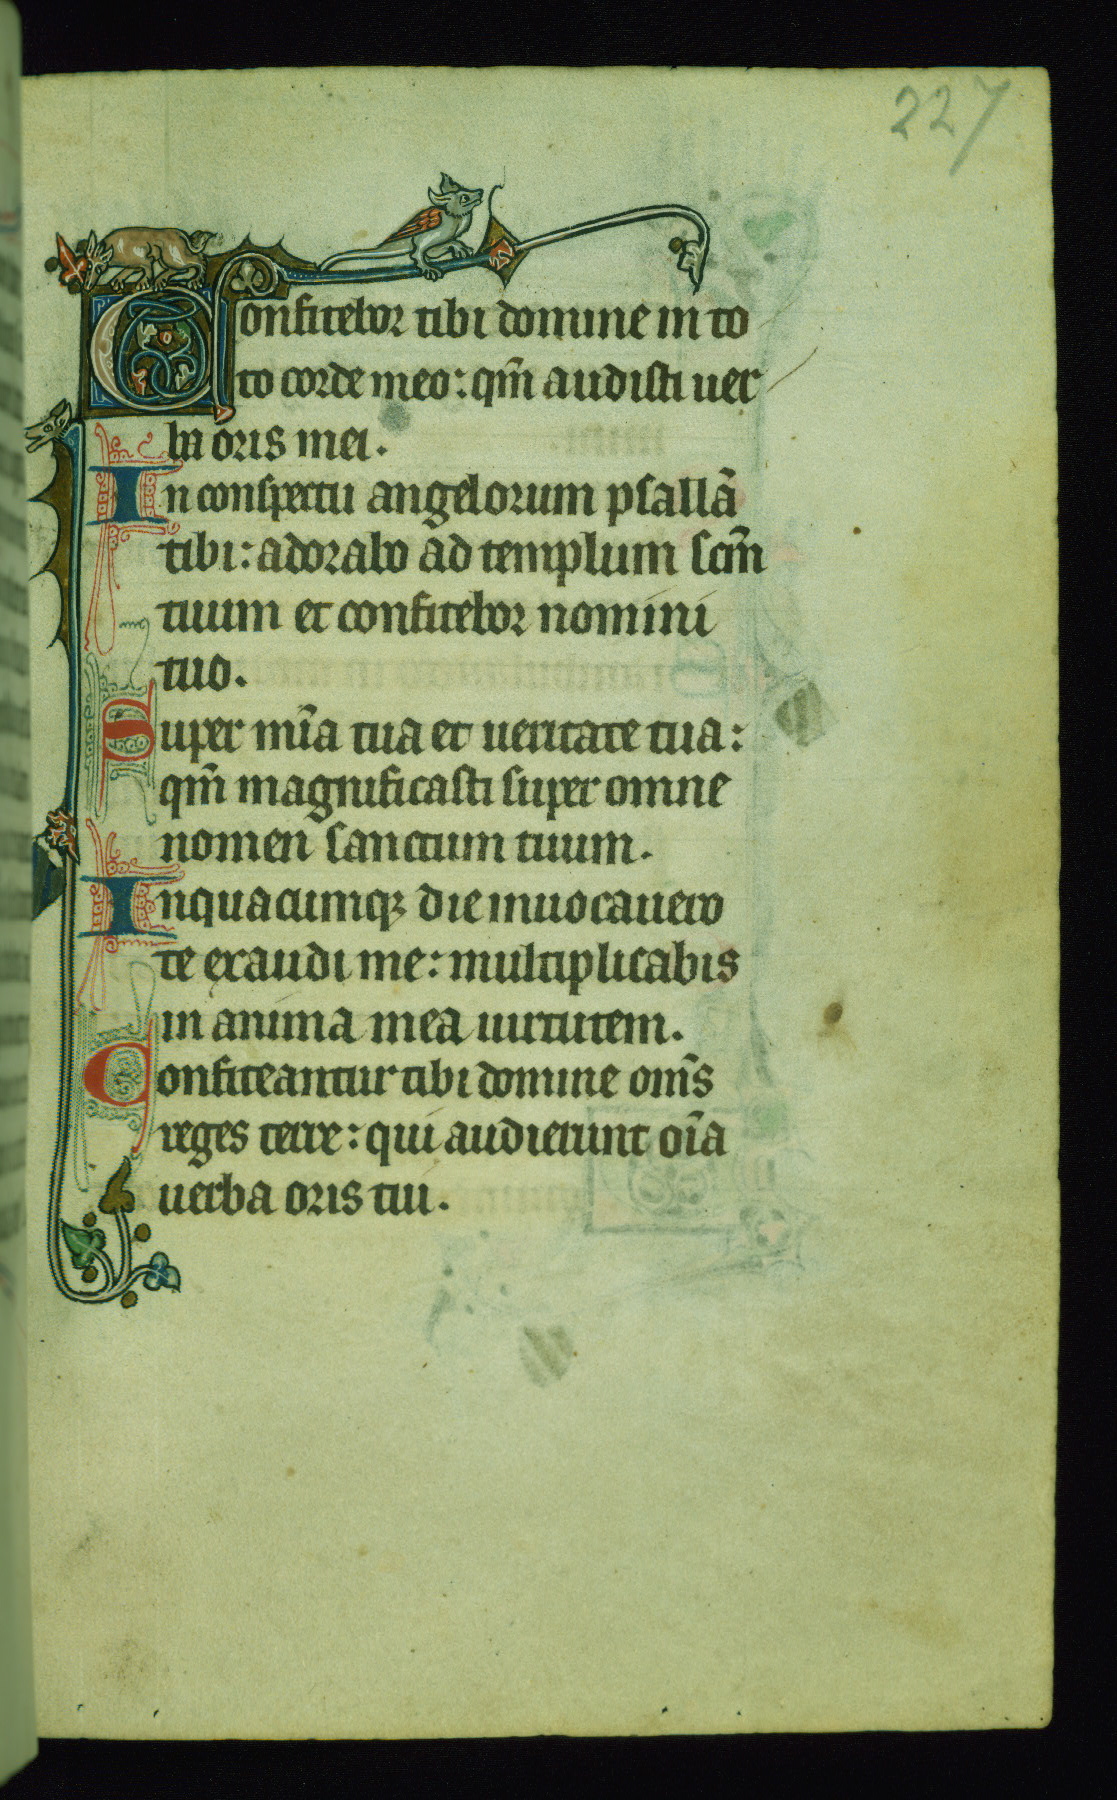 227
Confitebor tibi domine in to
to corde meo: qm̃ audisti uer
ba oris mei.
In conspectu angelorum psallã
tibi: adorabo ad templum scm̃
tuum et confitebor nomini
tuo.
Super mĩa tua et ueritate tua:
qm̃ magnificasti super omne
nomen sanctum tuum.
In quacumqꝫ die inuocauero
te exaudi me: multiplicabis
in anima mea uirtutem.
Confiteantur tibi domine om̃s
reges terre: qui audierunt oĩa
uerba oris tui.